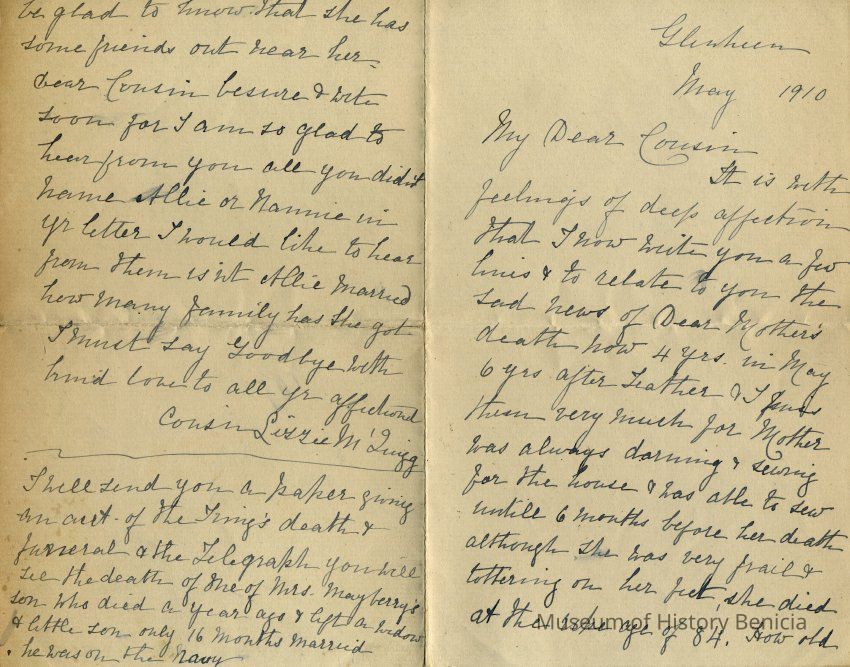 be glad to know that she has
some friends out near her.
dear Cousin besure & write
soon for I am so glad to
hear from you all you didn't
name Allie or Nannie in
yr letter I would like to hear
from them is'nt Allie Married
how many family has she got
I must say Goodbye with
kind love to all yr affectiond
Cousin Lizzie McQuigg
I will send you a paper giving
an acct. of the King's death &
funeral & the Telegraph you will
see the death of one of Mrs. Mayberry's
son who died a year ago & left a widow
& little son only 16 months married
he was on the Navy
Glenheen
May 1910
My Dear Cousin
It is with
feelings of deep affection
that I now write you a few
lines & to relate to you the
sad news of Dear Mother's
death now 4 yrs. in May
6 yrs. after Feather & I miss
them very much for Mother
was always darning & sewing
for the house & was able to sew
untill 6 months before her death
although she was very frail &
tottering on her feet, she died
at the ripe age of 84. How old
Museum of History Benicia